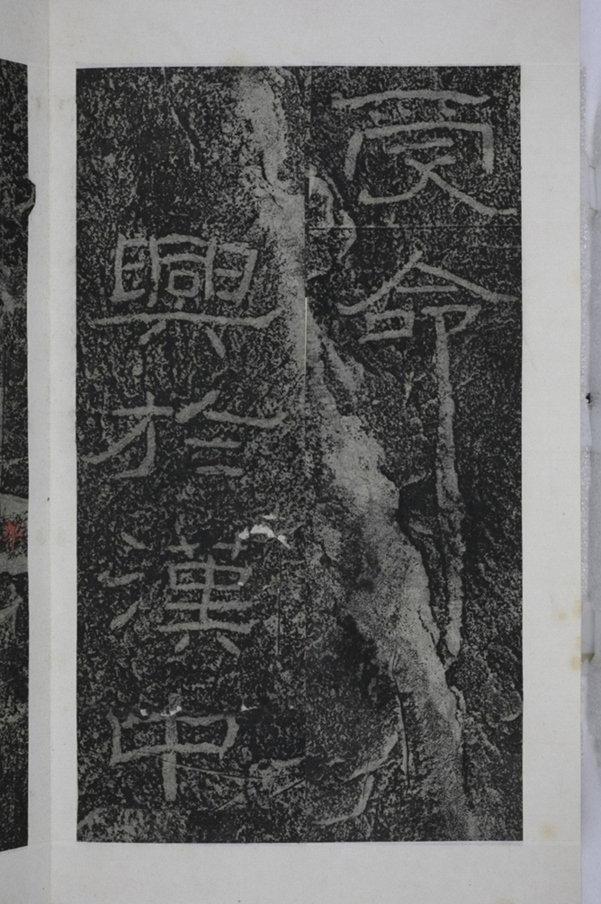 受命
興於漢中